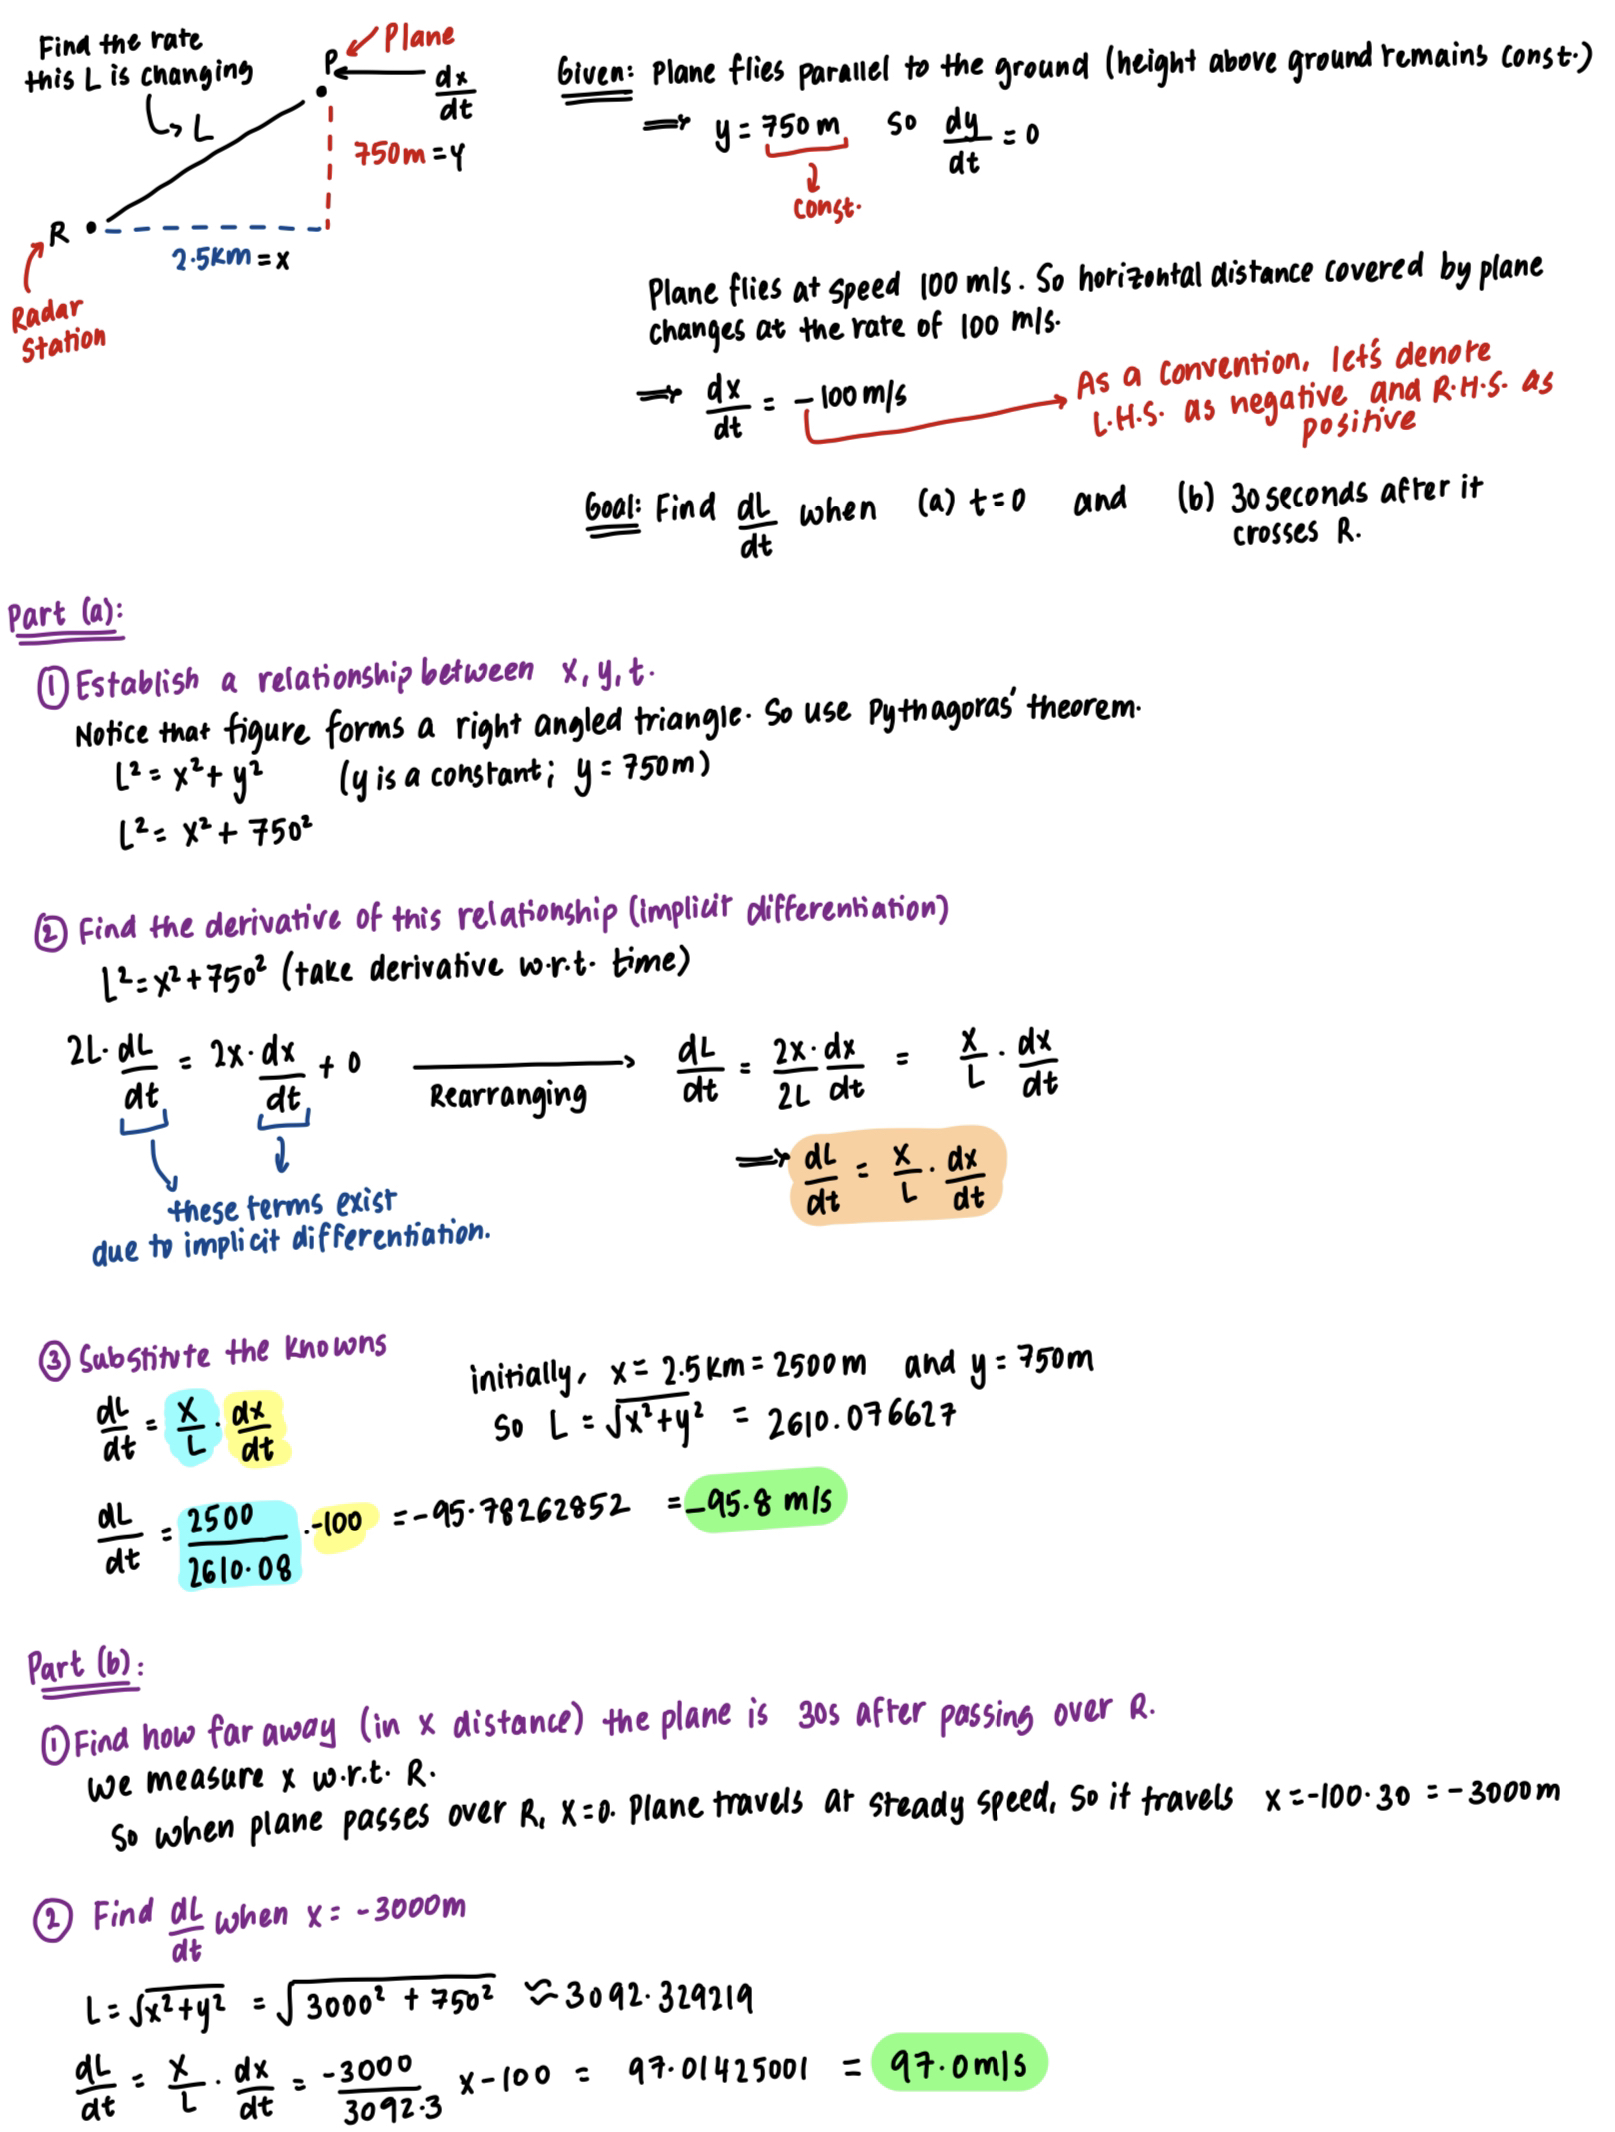 Find the rate
this L is changing
L
P
Plane
dx/dt
750m = y
R
2.5km = x
Radar
Station
Given: Plane flies parallel to the ground (height above ground remains const.)
⟹ y = 750 m so dy/dt = 0
const.
Plane flies at speed 100 m/s. So horizontal distance covered by plane
changes at the rate of 100 m/s.
⟹ dx/dt = -100 m/s
As a convention, let's denote
L.H.S. as negative and R.H.S. as
positive
Goal: Find dL/dt when (a) t=0 and (b) 30 seconds after it
crosses R.
Part (a):
① Establish a relationship between x, y, t.
Notice that figure forms a right angled triangle. So use Pythagoras' theorem.
L² = x² + y² (y is a constant; y = 750m)
L² = x² + 750²
② Find the derivative of this relationship (implicit differentiation)
L² = x² + 750² (take derivative w.r.t. time)
2L · dL/dt = 2x · dx/dt + 0 Rearranging dL/dt = 2x/2L · dx/dt = x/L · dx/dt
⟹ dL/dt = x/L · dx/dt
these terms exist
due to implicit differentiation.
③ Substitute the knowns
dL/dt = x/L · dx/dt
initially, x = 2.5 km = 2500 m and y = 750m
So L = √x²+y² = 2610.076627
dL/dt = 2500/2610.08 · -100 = -95.78262852 = -95.8 m/s
Part (b):
① Find how far away (in x distance) the plane is 30s after passing over R.
We measure x w.r.t. R.
So when plane passes over R, x=0. Plane travels at steady speed, so it travels x = -100·30 = -3000m
② Find dL/dt when x = -3000m
L = √x²+y² = √3000² + 750² ≈ 3092.329219
dL/dt = x/L · dx/dt = -3000/3092.3 x -100 = 97.01425001 = 97.0 m/s